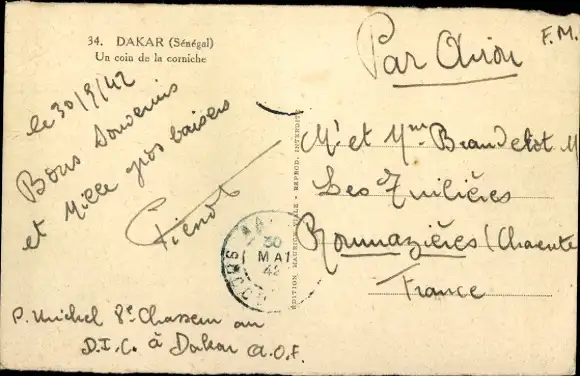 34. DAKAR (Sénégal)
Un coin de la corniche
Par Avion
F.M.
le 30/5/42
Bons Souvenirs
et Mille gros baisers
Pierrot
Mr et Mme Beaudelot M
Les Tuilières
Roumazières (Charente
France
30
MAI
42
P. Michel 8e Chasseur au
D.I.C. à Dakar A.O.F.
ÉDITION - REPROD. INTERDITE